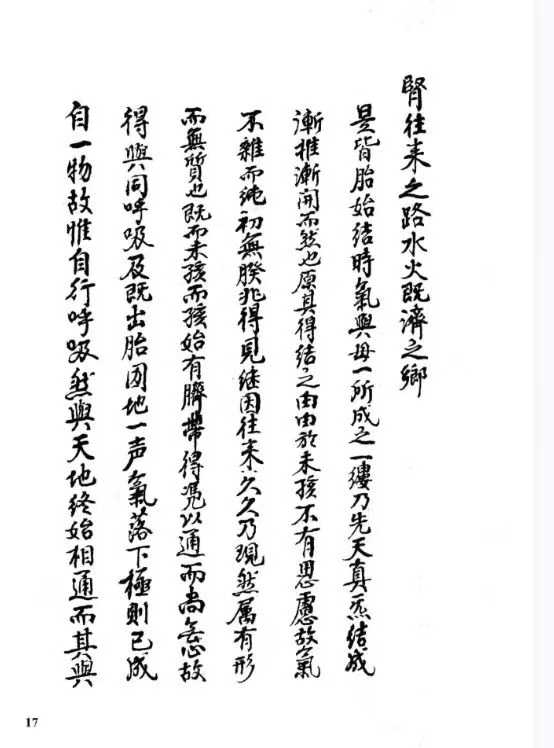 腎往来之路水火既濟之鄉
是皆胎始結時氣與母一所成之一縷乃先天真炁結成
漸推漸開而然也原其得結之由由於未孩不有思慮故氣
不雜而純初無朕兆得見継因往来久久乃現然属有形
而無質也既而未孩而孩始有臍帶得凴以通而尚無心故
得與同呼吸及既出胎囫地一声氣落下極則已成
自一物故惟自行呼吸然與天地終始相通而其與
17